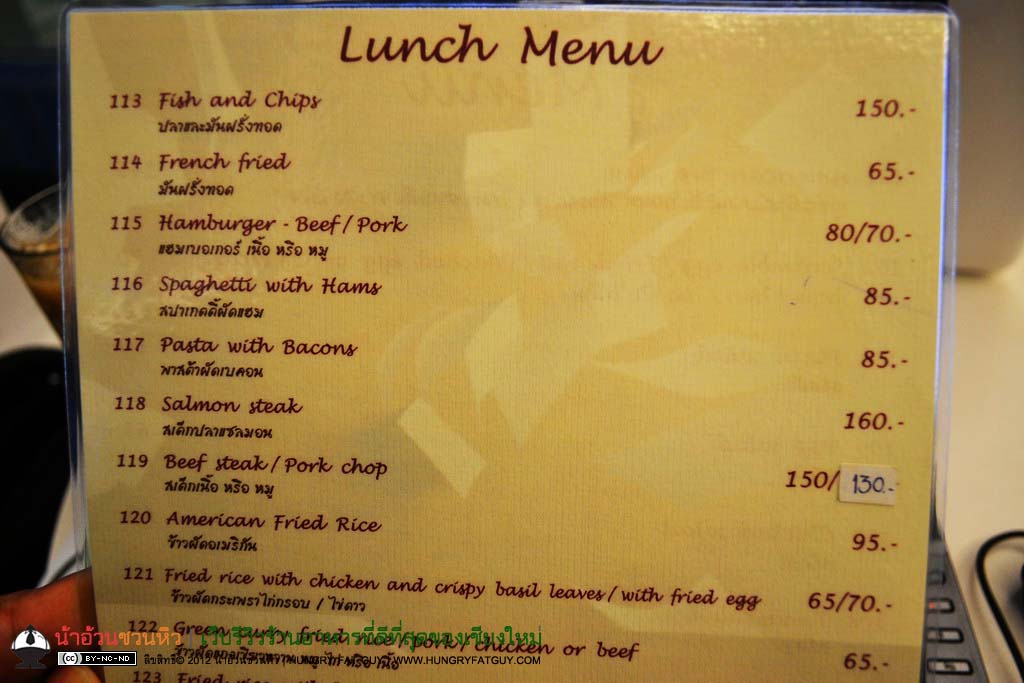 Lunch Menu
113 Fish and Chips 150.-
ปลาและมันฝรั่งทอด
114 French fried 65.-
มันฝรั่งทอด
115 Hamburger - Beef / Pork 80/70.-
แฮมเบอเกอร์ เนื้อ หรือ หมู
116 Spaghetti with Hams 85.-
สปาเกตตี้ผัดแฮม
117 Pasta with Bacons 85.-
พาสต้าผัดเบคอน
118 Salmon steak 160.-
สเต็กปลาแซลมอน
119 Beef steak / Pork chop 150/130.-
สเต็กเนื้อ หรือ หมู
120 American Fried Rice 95.-
ข้าวผัดอเมริกัน
121 Fried rice with chicken and crispy basil leaves / with fried egg 65/70.-
ข้าวผัดกระเพราไก่กรอบ / ไข่ดาว
122 Green curry fried rice / pork / chicken or beef 65.-
น้าอ้วนชวนหิว เว็บรีวิวร้านอาหารที่ดีที่สุดของเชียงใหม่
หรือ เนื้อ
CC BY-NC-ND ลิขสิทธิ์ © 2012 น้าอ้วนชวนหิว HUNGRY FAT GUY WWW.HUNGRYFATGUY.COM
123 Fried